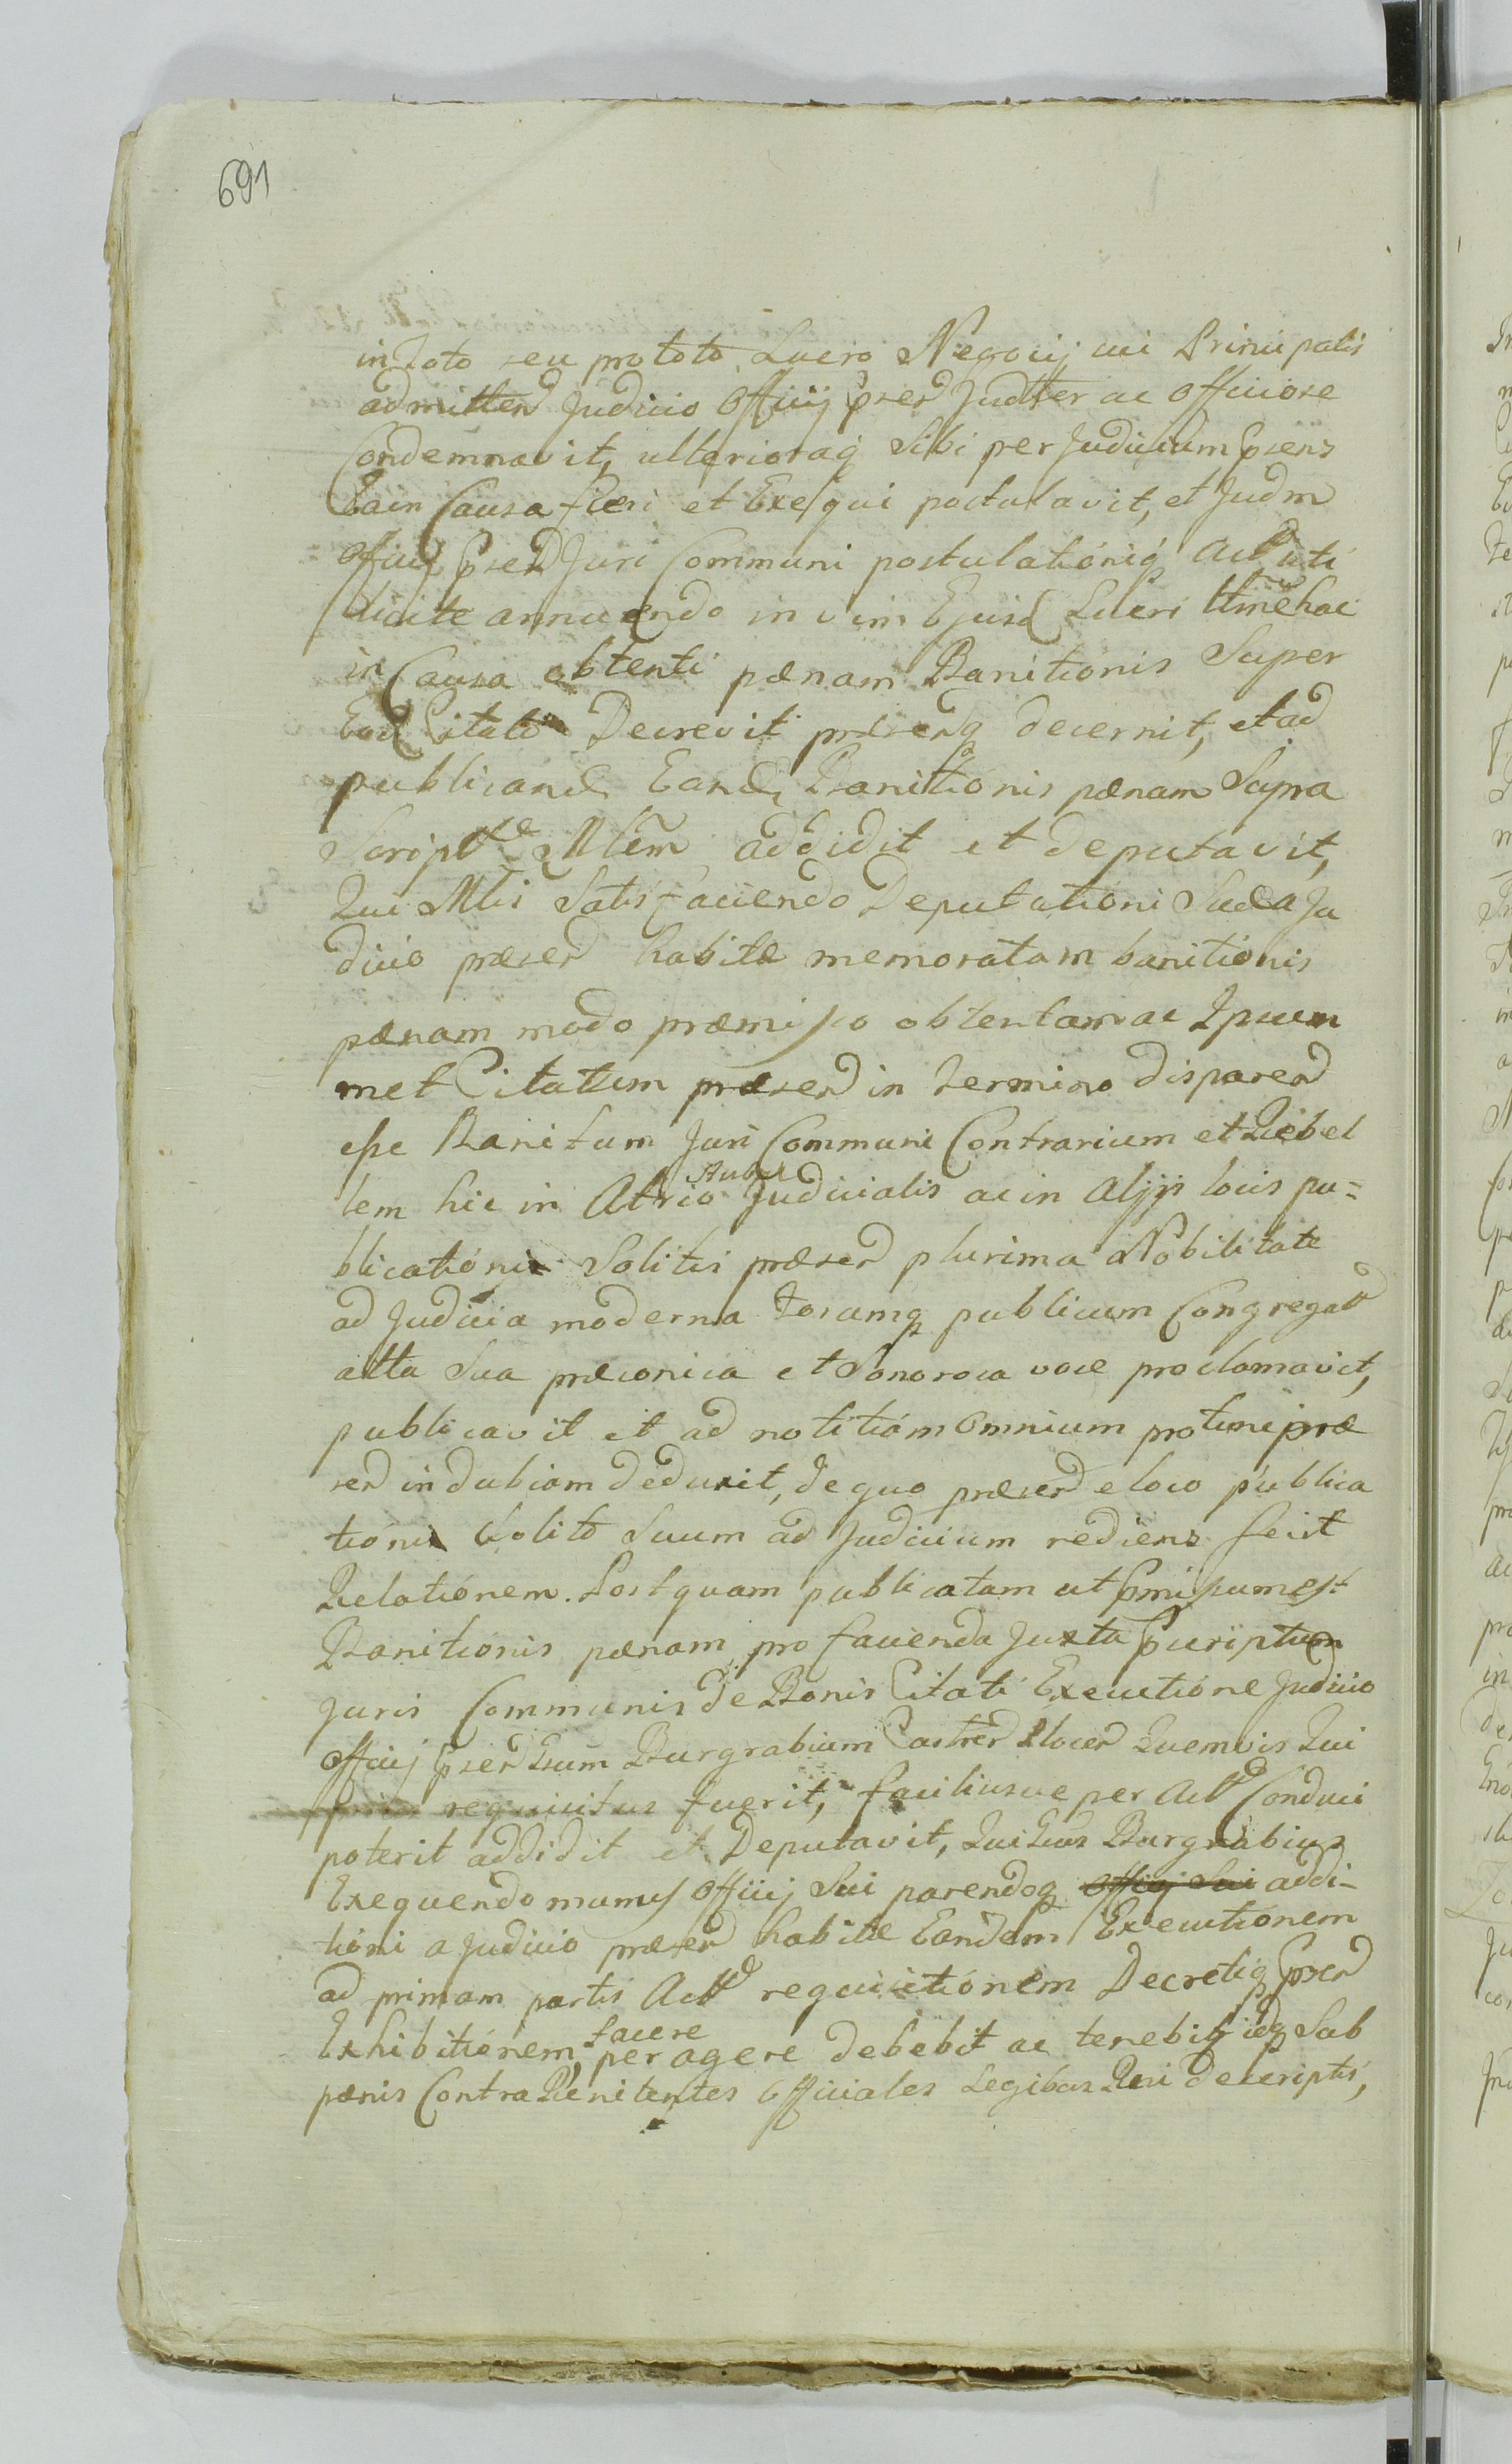 691
in Toto seu pro toto Lucro Negocij uti Principalis
admitten Judicio Officij psen Judlter ac Officiose
Condemnavit, ulterioraq Sibi per Judicium psens
Ea in Causa fieri et Exequi postulavit, et Judm
Officij psen Juri Communi postulationiq Act uti
licite annuendo in vim Ejusd Lucri ttine hac
in Causa obtenti pænam Banitionis Super
Eod Citato Decrevit præsenq decernit, et ad
publicand Eand Banitionis pænam Supra
Script Mlem addidit et deputavit,
Qui Mlis Satisfaciendo Deputationi Suæ a Ju
dicio præsen habitæ memoratam banitionis
pænam modo præmisso obtentam ac Ipsum
met Citatum præsen in termino disparen
esse Banitum Juri Communi Contrarium et Rebel
lem hic in Atrio Stubæ Judicialis ac in Alijs locis pu=
blicationis Solitis præsen plurima Nobilitate
ad Judicia moderna forumq publicum Congregat
alta Sua præconica et Sonorosa voce proclamavit,
publicavit et ad notitiam omnium protunc præ
sen indubiam deduxit, de quo præsen e loco publica
tionis Solito Suum ad Judicium rediens fecit
Relationem. Postquam publicatam ut pmissum est
Banitionis pænam pro facienda Juxta pscriptum
Juris Communis de Bonis Citati Executione Judicio
Officij psen Gsum Burgrabium Castren locen Quemvis Qui
requisitus fuerit, faciliusve per Act Conduci
poterit addidit et Deputavit, Qui Gsus Burgrabius
Exequendo munus Officij Sui parendoq Officij Sui addi-
tioni a Judicio præsen habitæ Eandem Executionem
ad primam partis Act requisitionem Decretiq psen
Exhibitionem, facere peragere debebit ac tenebit idq Sub
pænis Contra Renitentes Officiales Legibus Rni descriptis,